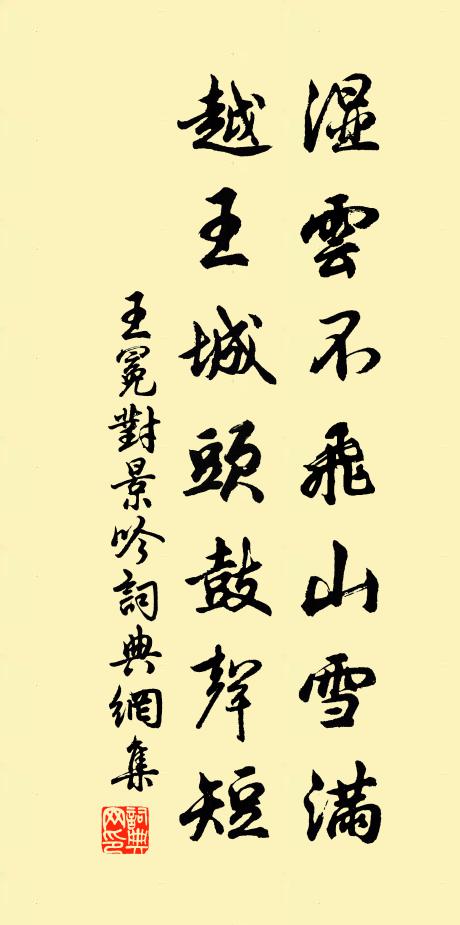 湿雲不飛山雪滿
越王城頭鼓聲短
王冕對景吟詞典網集
詞典網印